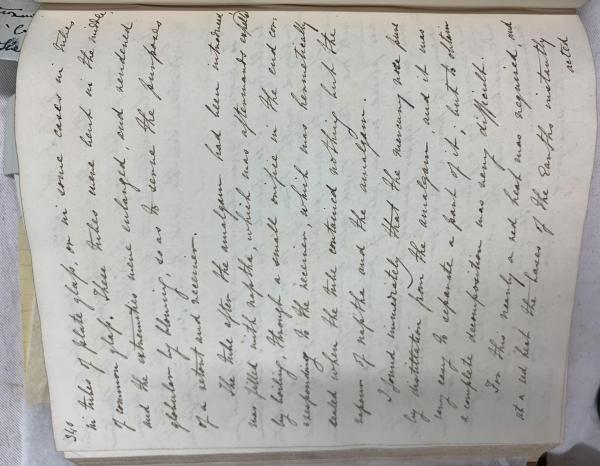 340
in tubes of plate glass, or in some cases in tubes
of common glass. These tubes were bent in the middle,
and the extremities were enlarged, and rendered
globular by blowing, so as to serve the purposes
of a retort and receiver.
The tube after the amalgam had been introduced
was filled with naptha, which was afterwards expelled
by boiling, through a small orifice in the end cor-
responding to the receiver, which was hermetically
sealed when the tube contained nothing but the
vapour of naptha and the amalgam.
I found immediately that the mercury rose pure
by distillation from the amalgam and it was
very easy to separate a part of it; but to obtain
a complete decomposition was very difficult.
For this nearly a red heat was required, and
at a red heat the bases of the Earths instantly
acted